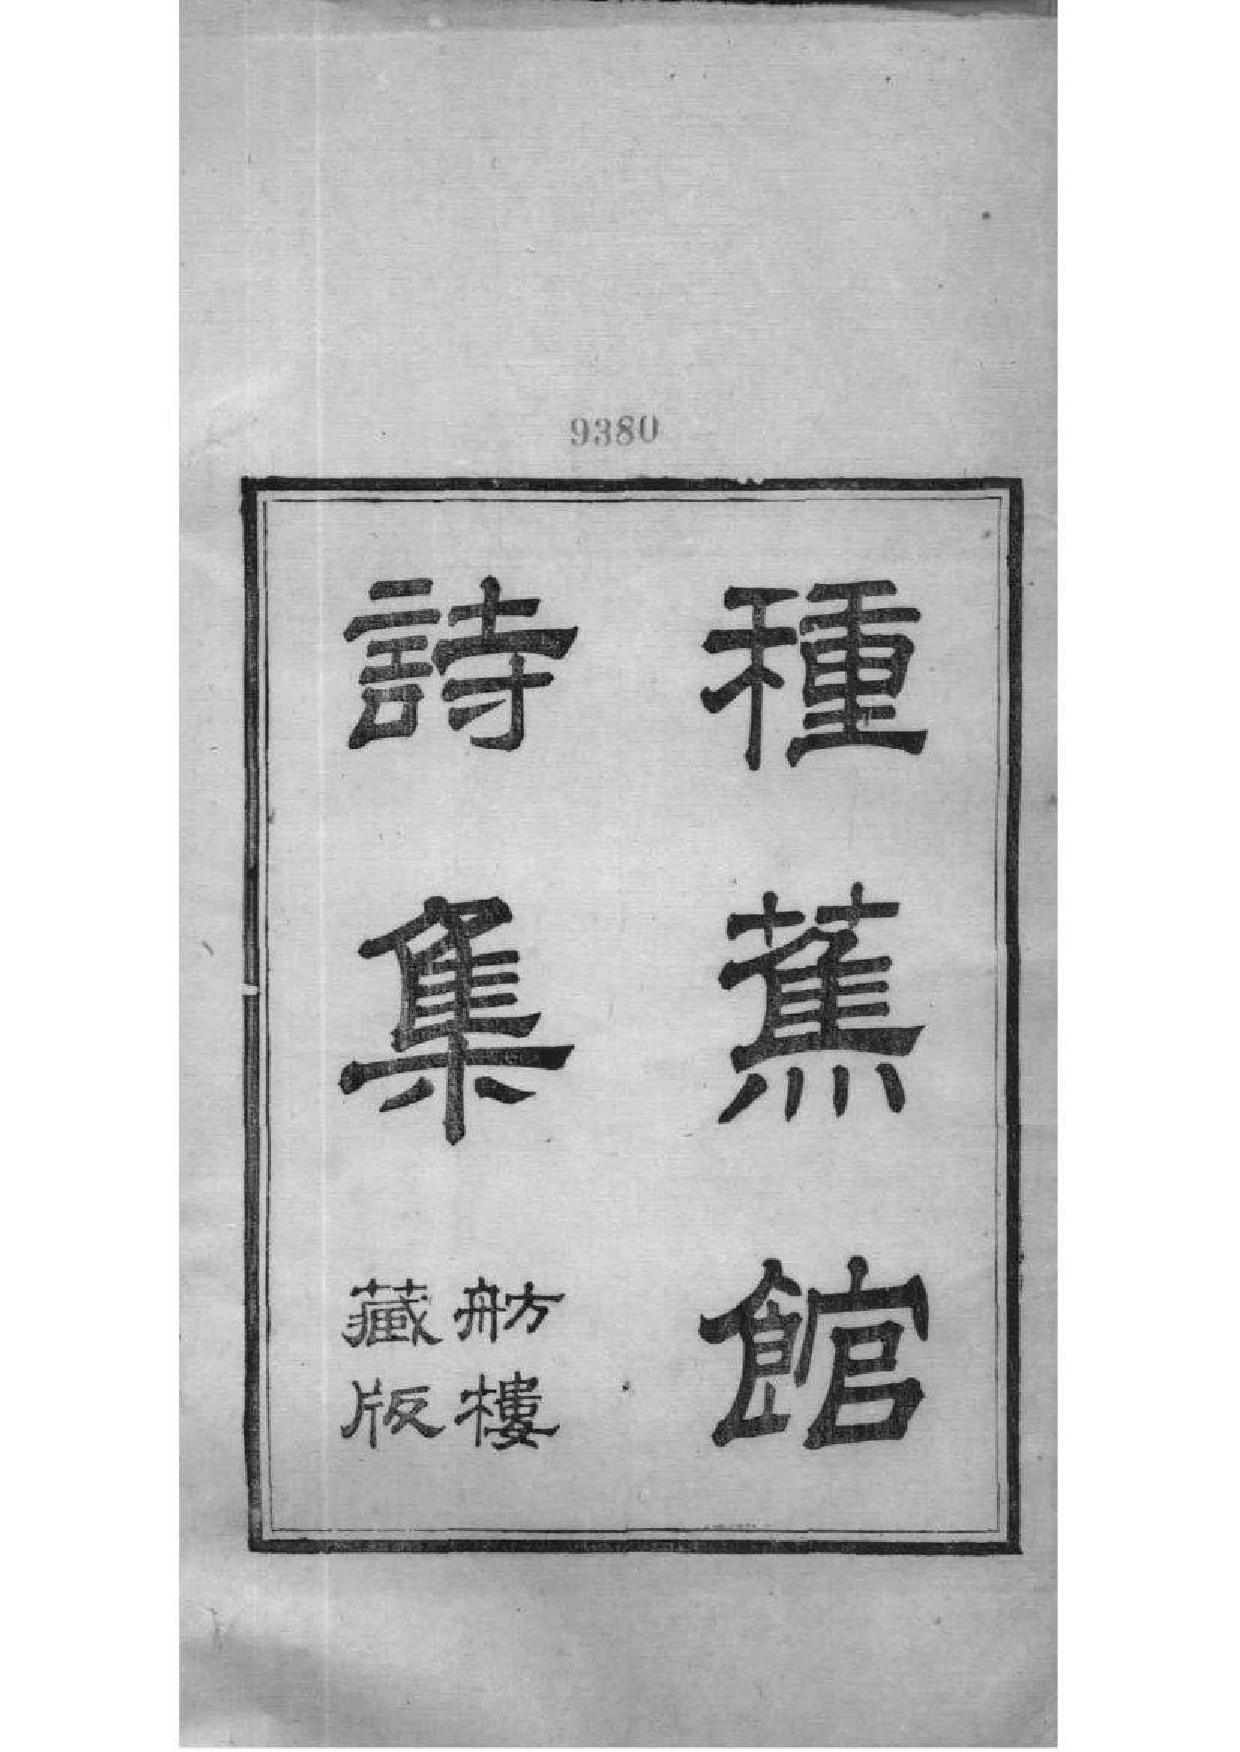 9380
種蕉館
詩集
舫樓
藏版